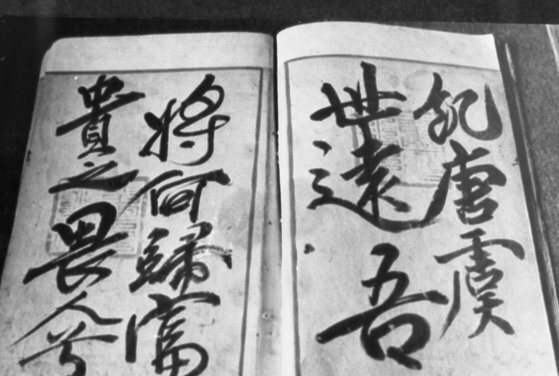 飢唐虞
世遠吾
將何歸富
貴之畏人兮